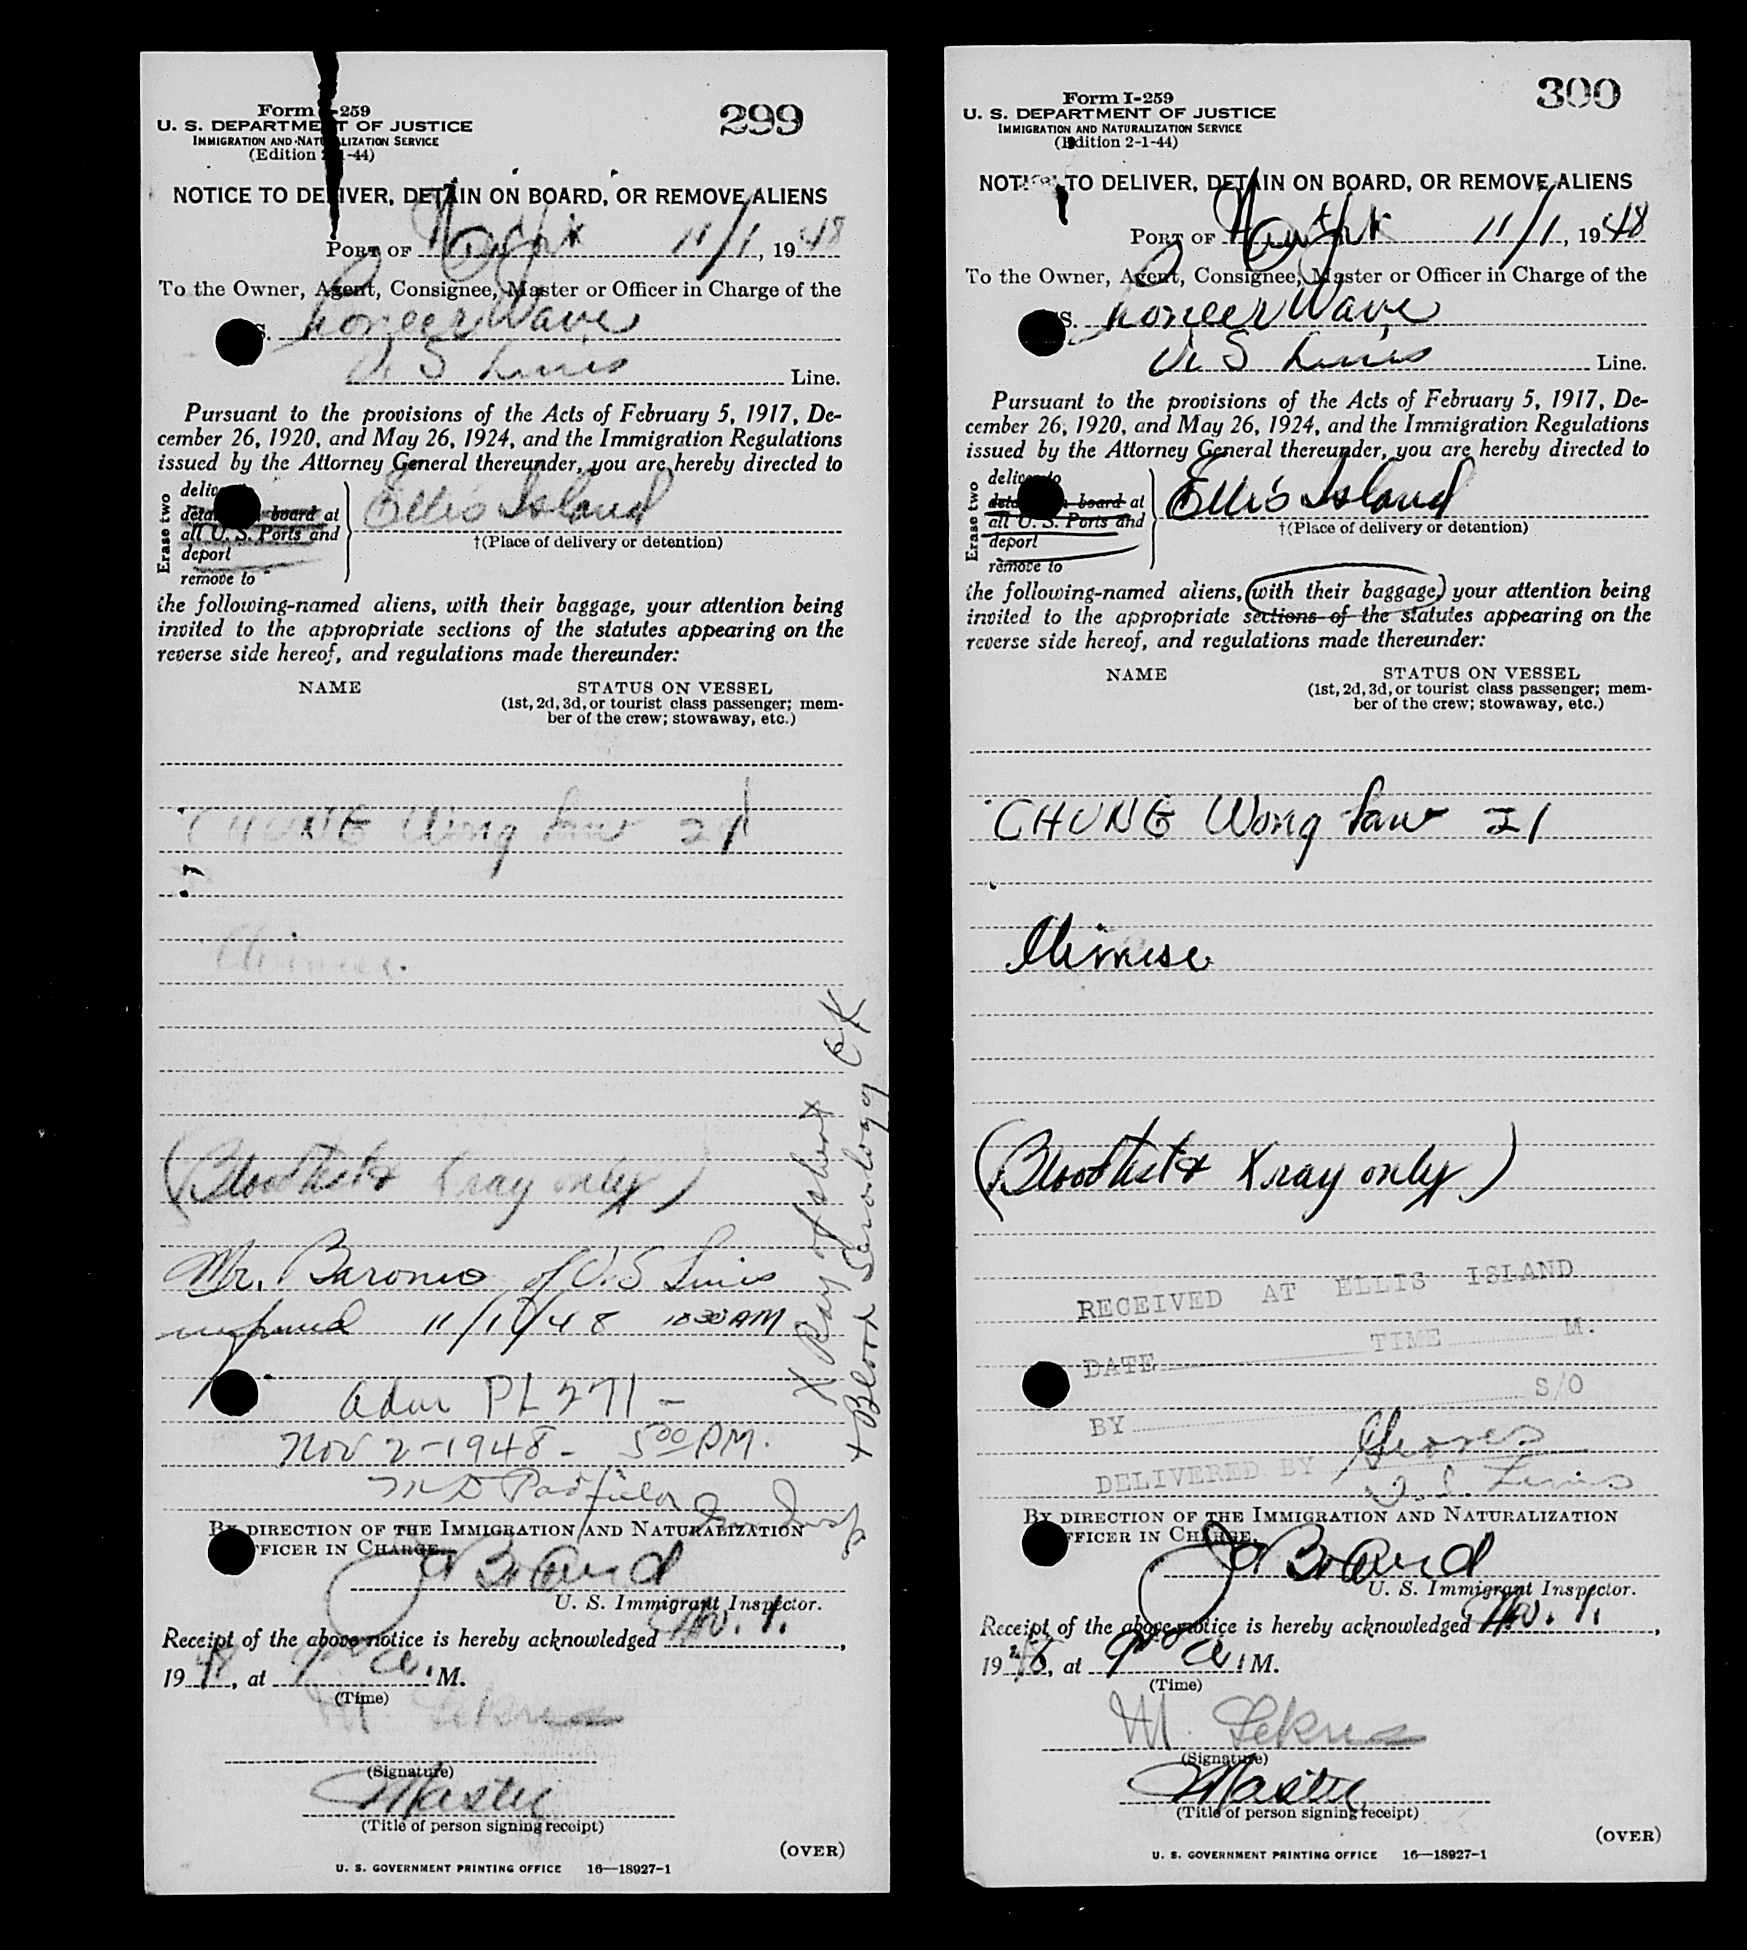 299
Form I-259
U. S. DEPARTMENT OF JUSTICE
IMMIGRATION AND NATURALIZATION SERVICE
(Edition 2-1-44)
NOTICE TO DELIVER, DETAIN ON BOARD, OR REMOVE ALIENS
PORT OF New York 11/1, 1948
To the Owner, Agent, Consignee, Master or Officer in Charge of the
S. Pioneer Wave
U. S Lines Line.
Pursuant to the provisions of the Acts of February 5, 1917, De-
cember 26, 1920, and May 26, 1924, and the Immigration Regulations
issued by the Attorney General thereunder, you are hereby directed to
Erase two
deliver to
detain on board at
all U. S. Ports and
deport
remove to
Ellis Island
†(Place of delivery or detention)
the following-named aliens, with their baggage, your attention being
invited to the appropriate sections of the statutes appearing on the
reverse side hereof, and regulations made thereunder:
NAME STATUS ON VESSEL
(1st, 2d, 3d, or tourist class passenger; mem-
ber of the crew; stowaway, etc.)
CHUNG Wong Law 21
Chinese
(Blood test & Xray only)
Mr. Baronio of U.S Lines
informed 11/1/48 10 30 AM
X Ray of chest OK
+ Blood Serology
adm PL 271 -
Nov 2-1948- 5 00 PM.
M D
BY DIRECTION OF THE IMMIGRATION AND NATURALIZATION
OFFICER IN CHARGE.
U. S. Immigrant Inspector.
Receipt of the above notice is hereby acknowledged Nov. 1.,
1948, at 9 00 a. M.
(Time)
M.
(Signature)
Master
(Title of person signing receipt)
(OVER)
U. S. GOVERNMENT PRINTING OFFICE 16—18927-1
300
Form I-259
U. S. DEPARTMENT OF JUSTICE
IMMIGRATION AND NATURALIZATION SERVICE
(Edition 2-1-44)
NOTICE TO DELIVER, DETAIN ON BOARD, OR REMOVE ALIENS
PORT OF New York 11/1, 1948
To the Owner, Agent, Consignee, Master or Officer in Charge of the
SS. Pioneer Wave
U. S Lines Line.
Pursuant to the provisions of the Acts of February 5, 1917, De-
cember 26, 1920, and May 26, 1924, and the Immigration Regulations
issued by the Attorney General thereunder, you are hereby directed to
Erase two
deliver to
detain on board at
all U. S. Ports and
deport
remove to
Ellis Island
†(Place of delivery or detention)
the following-named aliens, with their baggage, your attention being
invited to the appropriate sections of the statutes appearing on the
reverse side hereof, and regulations made thereunder:
NAME STATUS ON VESSEL
(1st, 2d, 3d, or tourist class passenger; mem-
ber of the crew; stowaway, etc.)
CHUNG Wong Law 21
Chinese
(Blood test & Xray only)
RECEIVED AT ELLIS ISLAND
DATE TIME M.
BY S/O
DELIVERED BY
U. S. Lines
BY DIRECTION OF THE IMMIGRATION AND NATURALIZATION
OFFICER IN CHARGE.
U. S. Immigrant Inspector.
Receipt of the above notice is hereby acknowledged Nov. 1.,
1948, at 9 00 a. M.
(Time)
M.
(Signature)
Master
(Title of person signing receipt)
(OVER)
U. S. GOVERNMENT PRINTING OFFICE 16—18927-1